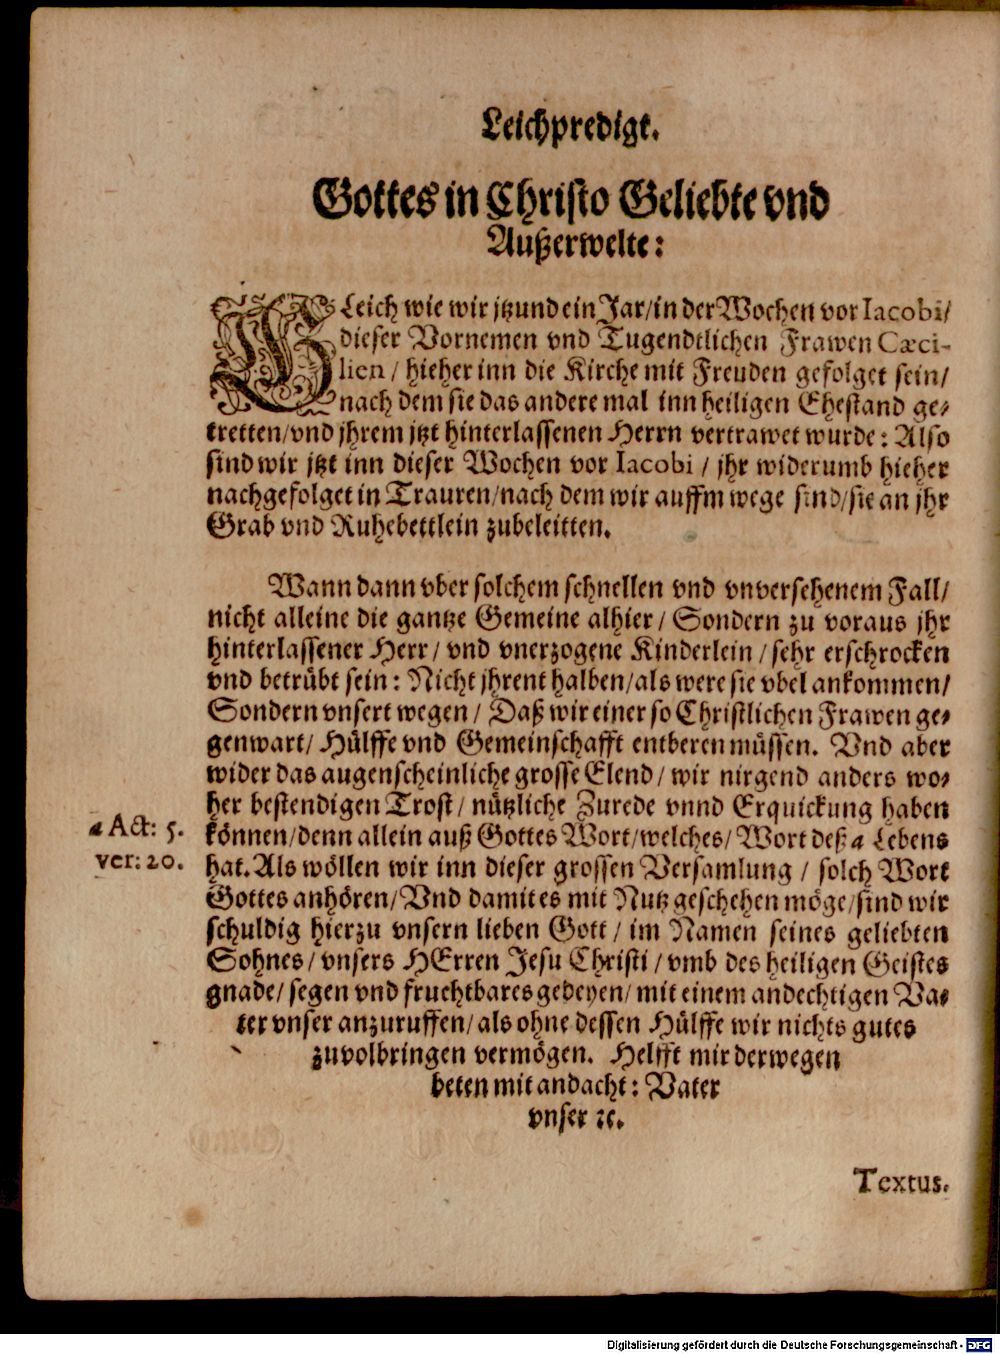 Leichpredigt.
Gottes in Christo Geliebte vnd
Außerwelte:
GLeich wie wir jtzund ein Jar/in der Wochen vor Iacobi/
dieser Vornemen vnd Tugendtlichen Frawen Cæci-
lien / hieher inn die Kirche mit Freuden gefolget sein/
nach dem sie das andere mal inn heiligen Ehestand ge-
tretten/vnd jhrem jtzt hinterlassenen Herrn vertrawet wurde: Also
sind wir jtzt inn dieser Wochen vor Iacobi / jhr widerumb hieher
nachgefolget in Trauren/nach dem wir auffm wege sind/sie an jhr
Grab vnd Ruhebettlein zubeleitten.
Wann dann vber solchem schnellen vnd vnversehenem Fall/
nicht alleine die gantze Gemeine alhier / Sondern zu voraus jhr
hinterlassener Herr / vnd vnerzogene Kinderlein / sehr erschrocken
vnd betrübt sein: Nicht jhrent halben/als were sie vbel ankommen/
Sondern vnsert wegen / Daß wir einer so Christlichen Frawen ge-
genwart/ Hülffe vnd Gemeinschafft entberen müssen. Vnd aber
wider das augenscheinliche grosse Elend / wir nirgend anders wo-
her bestendigen Trost / nützliche Zurede vnnd Erquickung haben
können/denn allein auß Gottes Wort/welches/ Wort deß a Lebens
a Act: 5.
ver: 20.
hat. Als wöllen wir inn dieser grossen Versamlung / solch Wort
Gottes anhören/Vnd damit es mit Nutz geschehen möge/sind wir
schuldig hierzu vnsern lieben Gott / im Namen seines geliebten
Sohnes / vnsers HErren Jesu Christi / vmb des heiligen Geistes
gnade/ segen vnd fruchtbares gedeyen/ mit einem andechtigen Va-
ter vnser anzuruffen/als ohne dessen Hülffe wir nichts gutes
zuvolbringen vermögen. Helfft mir derwegen
beten mit andacht: Vater
vnser ꝛc.
Textus.
Digitalisierung gefördert durch die Deutsche Forschungsgemeinschaft - DFG